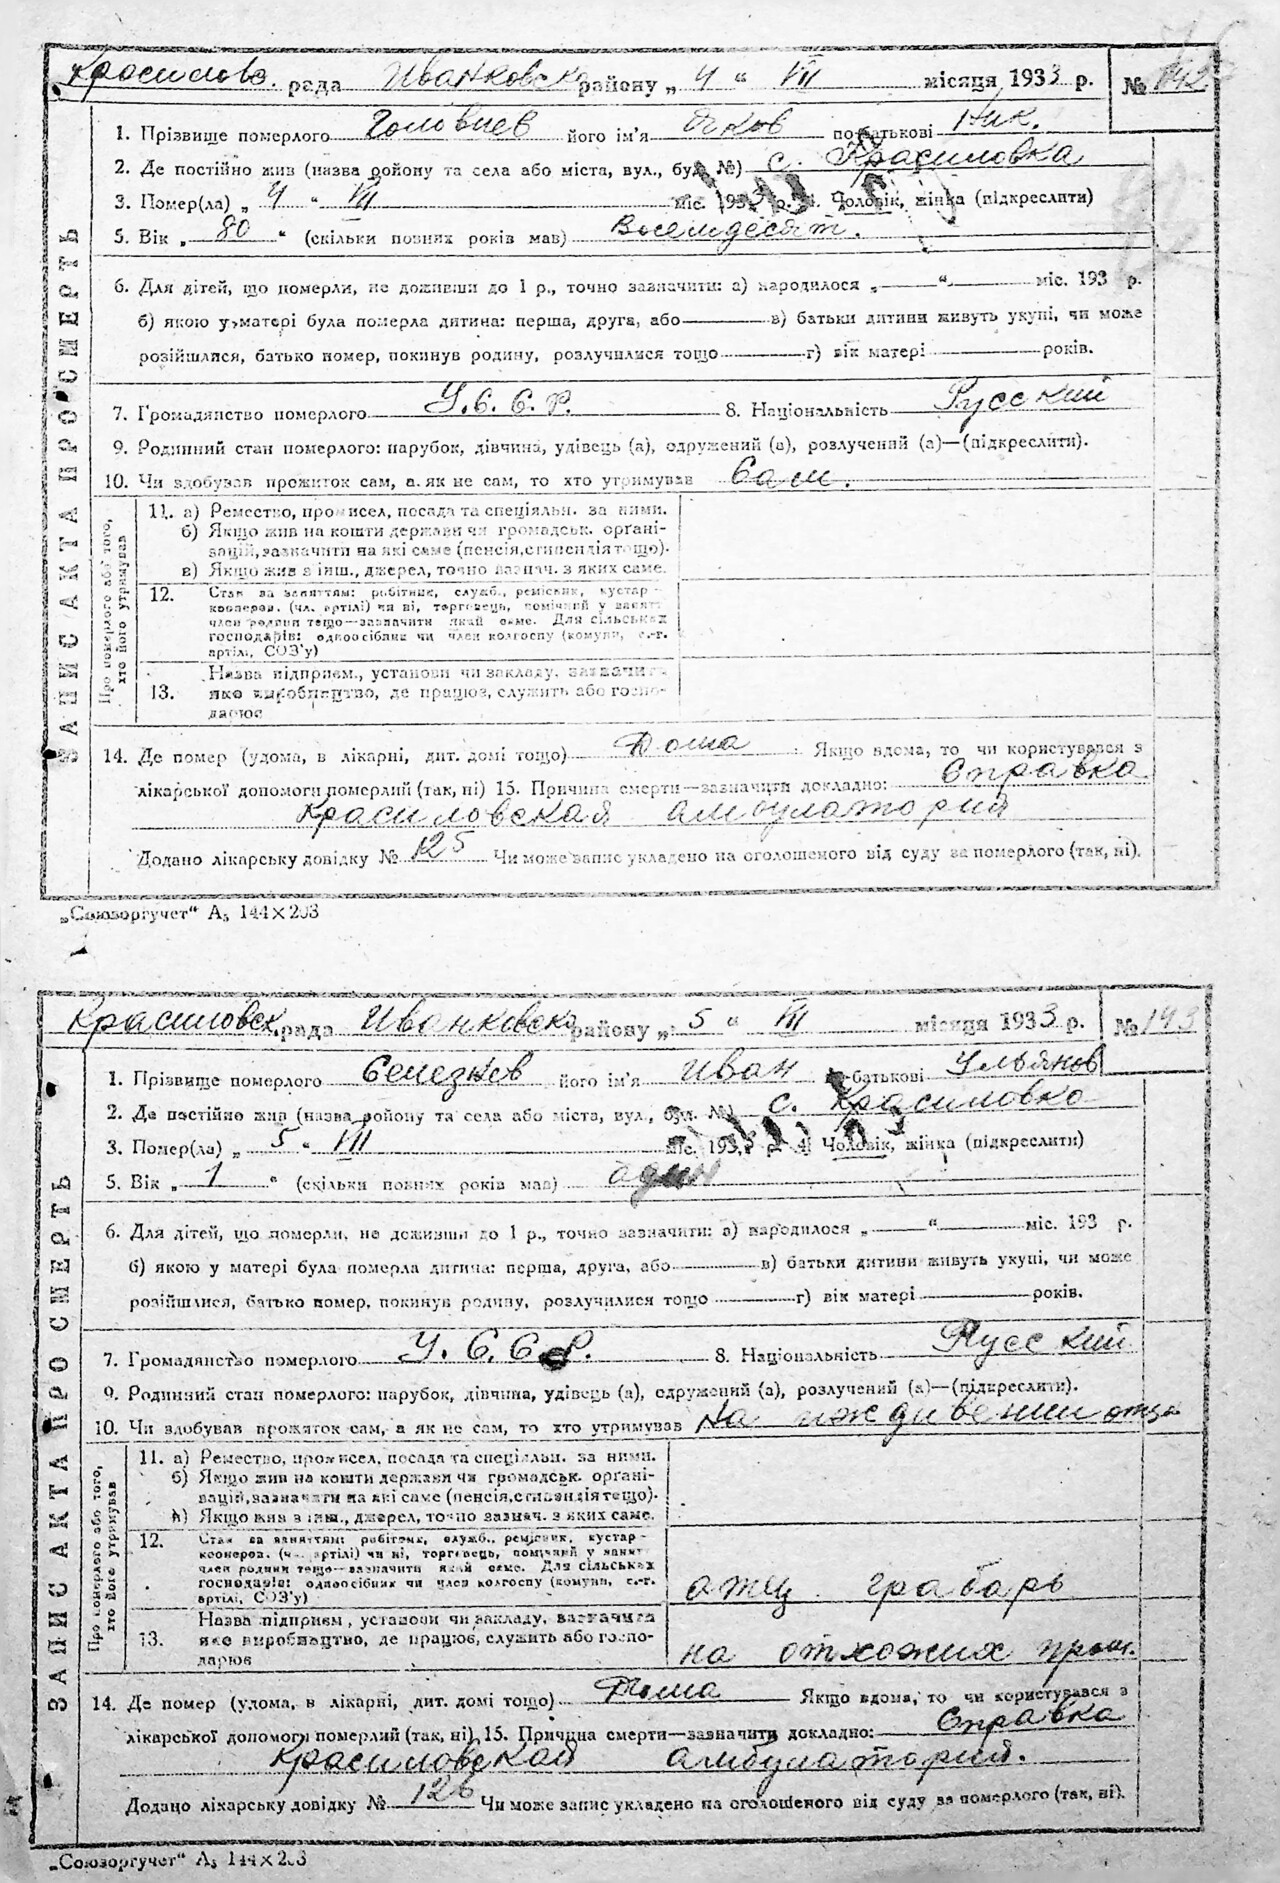 Красиловс. рада Иванковск району „ 4 “ VII місяця 1933 р. № 142
1. Прізвище померлого Головнев його ім'я Яков по батькові Ник.
2. Де постійно жив (назва району та села або міста, вул., буд. №) с. Красиловка
3. Помер(ла) „ 4 “ VII міс. 1933 р. 4. Чоловік, жінка (підкреслити)
5. Вік „ 80 “ (скільки повних років мав) Восемдесят.
6. Для дітей, що померли, не доживши до 1 р., точно зазначити: а) народилося „ “ міс. 193 р.
б) якою у матері була померла дитина: перша, друга, або в) батьки дитини живуть укупі, чи може
розійшлися, батько помер, покинув родину, розлучилися тощо г) вік матері років.
7. Громадянство померлого У.С.С.Р. 8. Національність Русский
9. Родинний стан померлого: парубок, дівчина, удівець (а), одружений (а), розлучений (а)—(підкреслити).
10. Чи здобував прожиток сам, а як не сам, то хто утримував Сам.
ЗАПИС АКТА ПРО СМЕРТЬ
Про померлого або того, хто його утримував
11. а) Ремество, промисел, посада та спеціяльн. за ними.
б) Якщо жив на кошти держави чи громадськ. орґані-
зацій, зазначити на які саме (пенсія, стипендія тощо).
в) Якщо жив з інш., джерел, точно зазнач. з яких саме.
12. Стан за заняттям: робітник, служб., ремісник, кустар-
кооперов. (чл. артілі) чи ні, торговець, помічний у занятт
член родини тощо—зазначити який саме. Для сільських
господарів: одноосібник чи член колгоспу (комуни, с.-г.
артілі, СОЗ'у)
13. Назва підприєм., установи чи закладу, зазначити
яке виробництво, де працює, служить або госпо-
дарює
14. Де помер (удома, в лікарні, дит. домі тощо) Дома Якщо вдома, то чи користувався з
лікарської допомоги померлий (так, ні) 15. Причина смерти—зазначити докладно: Справка
Красиловская амбулатория
Додано лікарську довідку № 125 Чи може запис укладено на оголошеного від суду за померлого (так, ні).
„Союзоргучет“ А₅ 144×203
Красиловск. рада Иванковско району „ 5 “ VII місяця 1933 р. № 143
1. Прізвище померлого Селезнев його ім'я Иван по батькові Ульянов
2. Де постійно жив (назва району та села або міста, вул., буд. №) с. Красиловка
3. Помер(ла) „ 5 “ VII міс. 193 р. 4. Чоловік, жінка (підкреслити)
5. Вік „ 1 “ (скільки повних років мав) один
6. Для дітей, що померли, не доживши до 1 р., точно зазначити: а) народилося „ “ міс. 193 р.
б) якою у матері була померла дитина: перша, друга, або в) батьки дитини живуть укупі, чи може
розійшлися, батько помер, покинув родину, розлучилися тощо г) вік матері років.
7. Громадянство померлого У.С.С.Р. 8. Національність Русский
9. Родинний стан померлого: парубок, дівчина, удівець (а), одружений (а), розлучений (а)—(підкреслити).
10. Чи здобував прожиток сам, а як не сам, то хто утримував На иждивении отца
ЗАПИС АКТА ПРО СМЕРТЬ
Про померлого або того, хто його утримував
11. а) Ремество, промисел, посада та спеціяльн. за ними.
б) Якщо жив на кошти держави чи громадськ. орґані-
зацій, зазначити на які саме (пенсія, стипендія тощо).
в) Якщо жив з інш., джерел, точно зазнач. з яких саме.
12. Стан за заняттям: робітник, служб., ремісник, кустар-
кооперов. (чл. артілі) чи ні, торговець, помічний у занятт
член родини тощо—зазначити який саме. Для сільських
господарів: одноосібник чи член колгоспу (комуни, с.-г.
артілі, СОЗ'у) отец грабарь
13. Назва підприєм., установи чи закладу, зазначити
яке виробництво, де працює, служить або госпо-
дарює на отхожих пром.
14. Де помер (удома, в лікарні, дит. домі тощо) Дома Якщо вдома, то чи користувався з
лікарської допомоги померлий (так, ні) 15. Причина смерти—зазначити докладно: Справка
Красиловской амбулатория.
Додано лікарську довідку № 126 Чи може запис укладено на оголошеного від суду за померлого (так, ні).
„Союзоргучет“ А₅ 144×203